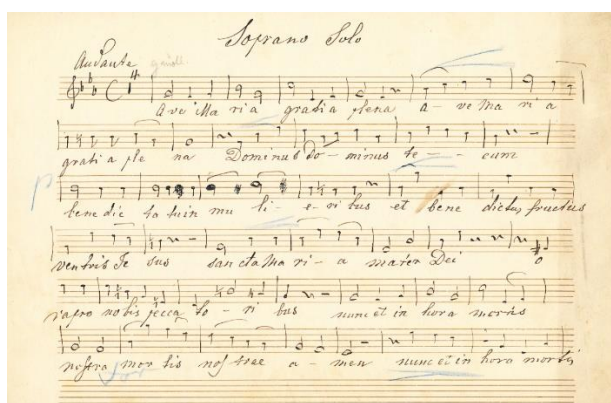 Soprano Solo
Andante gmoll
Ave Maria gratia plena a - ve Maria
gratia ple na Dominus do - minus te - - cum
p
bene dic ta tu in mu li - e - ri bus et bene dictus fructus
ventris Je sus sancta Ma ri - a mater Dei o
ra pro nobis pecca to - ri bus nunc et in hora mortis
nostra mor tis nostrae a - men nunc et in hora mortis